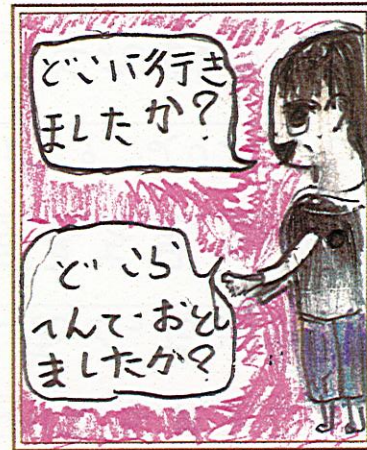 どこに行き
ましたか?
どこら
へんでおとし
ましたか?